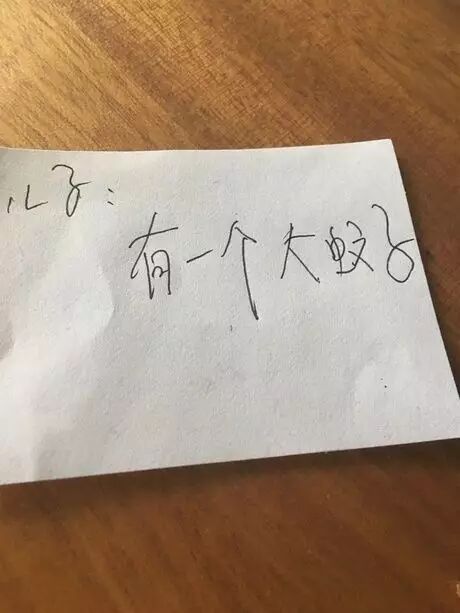 儿子：
有一个大蚊子